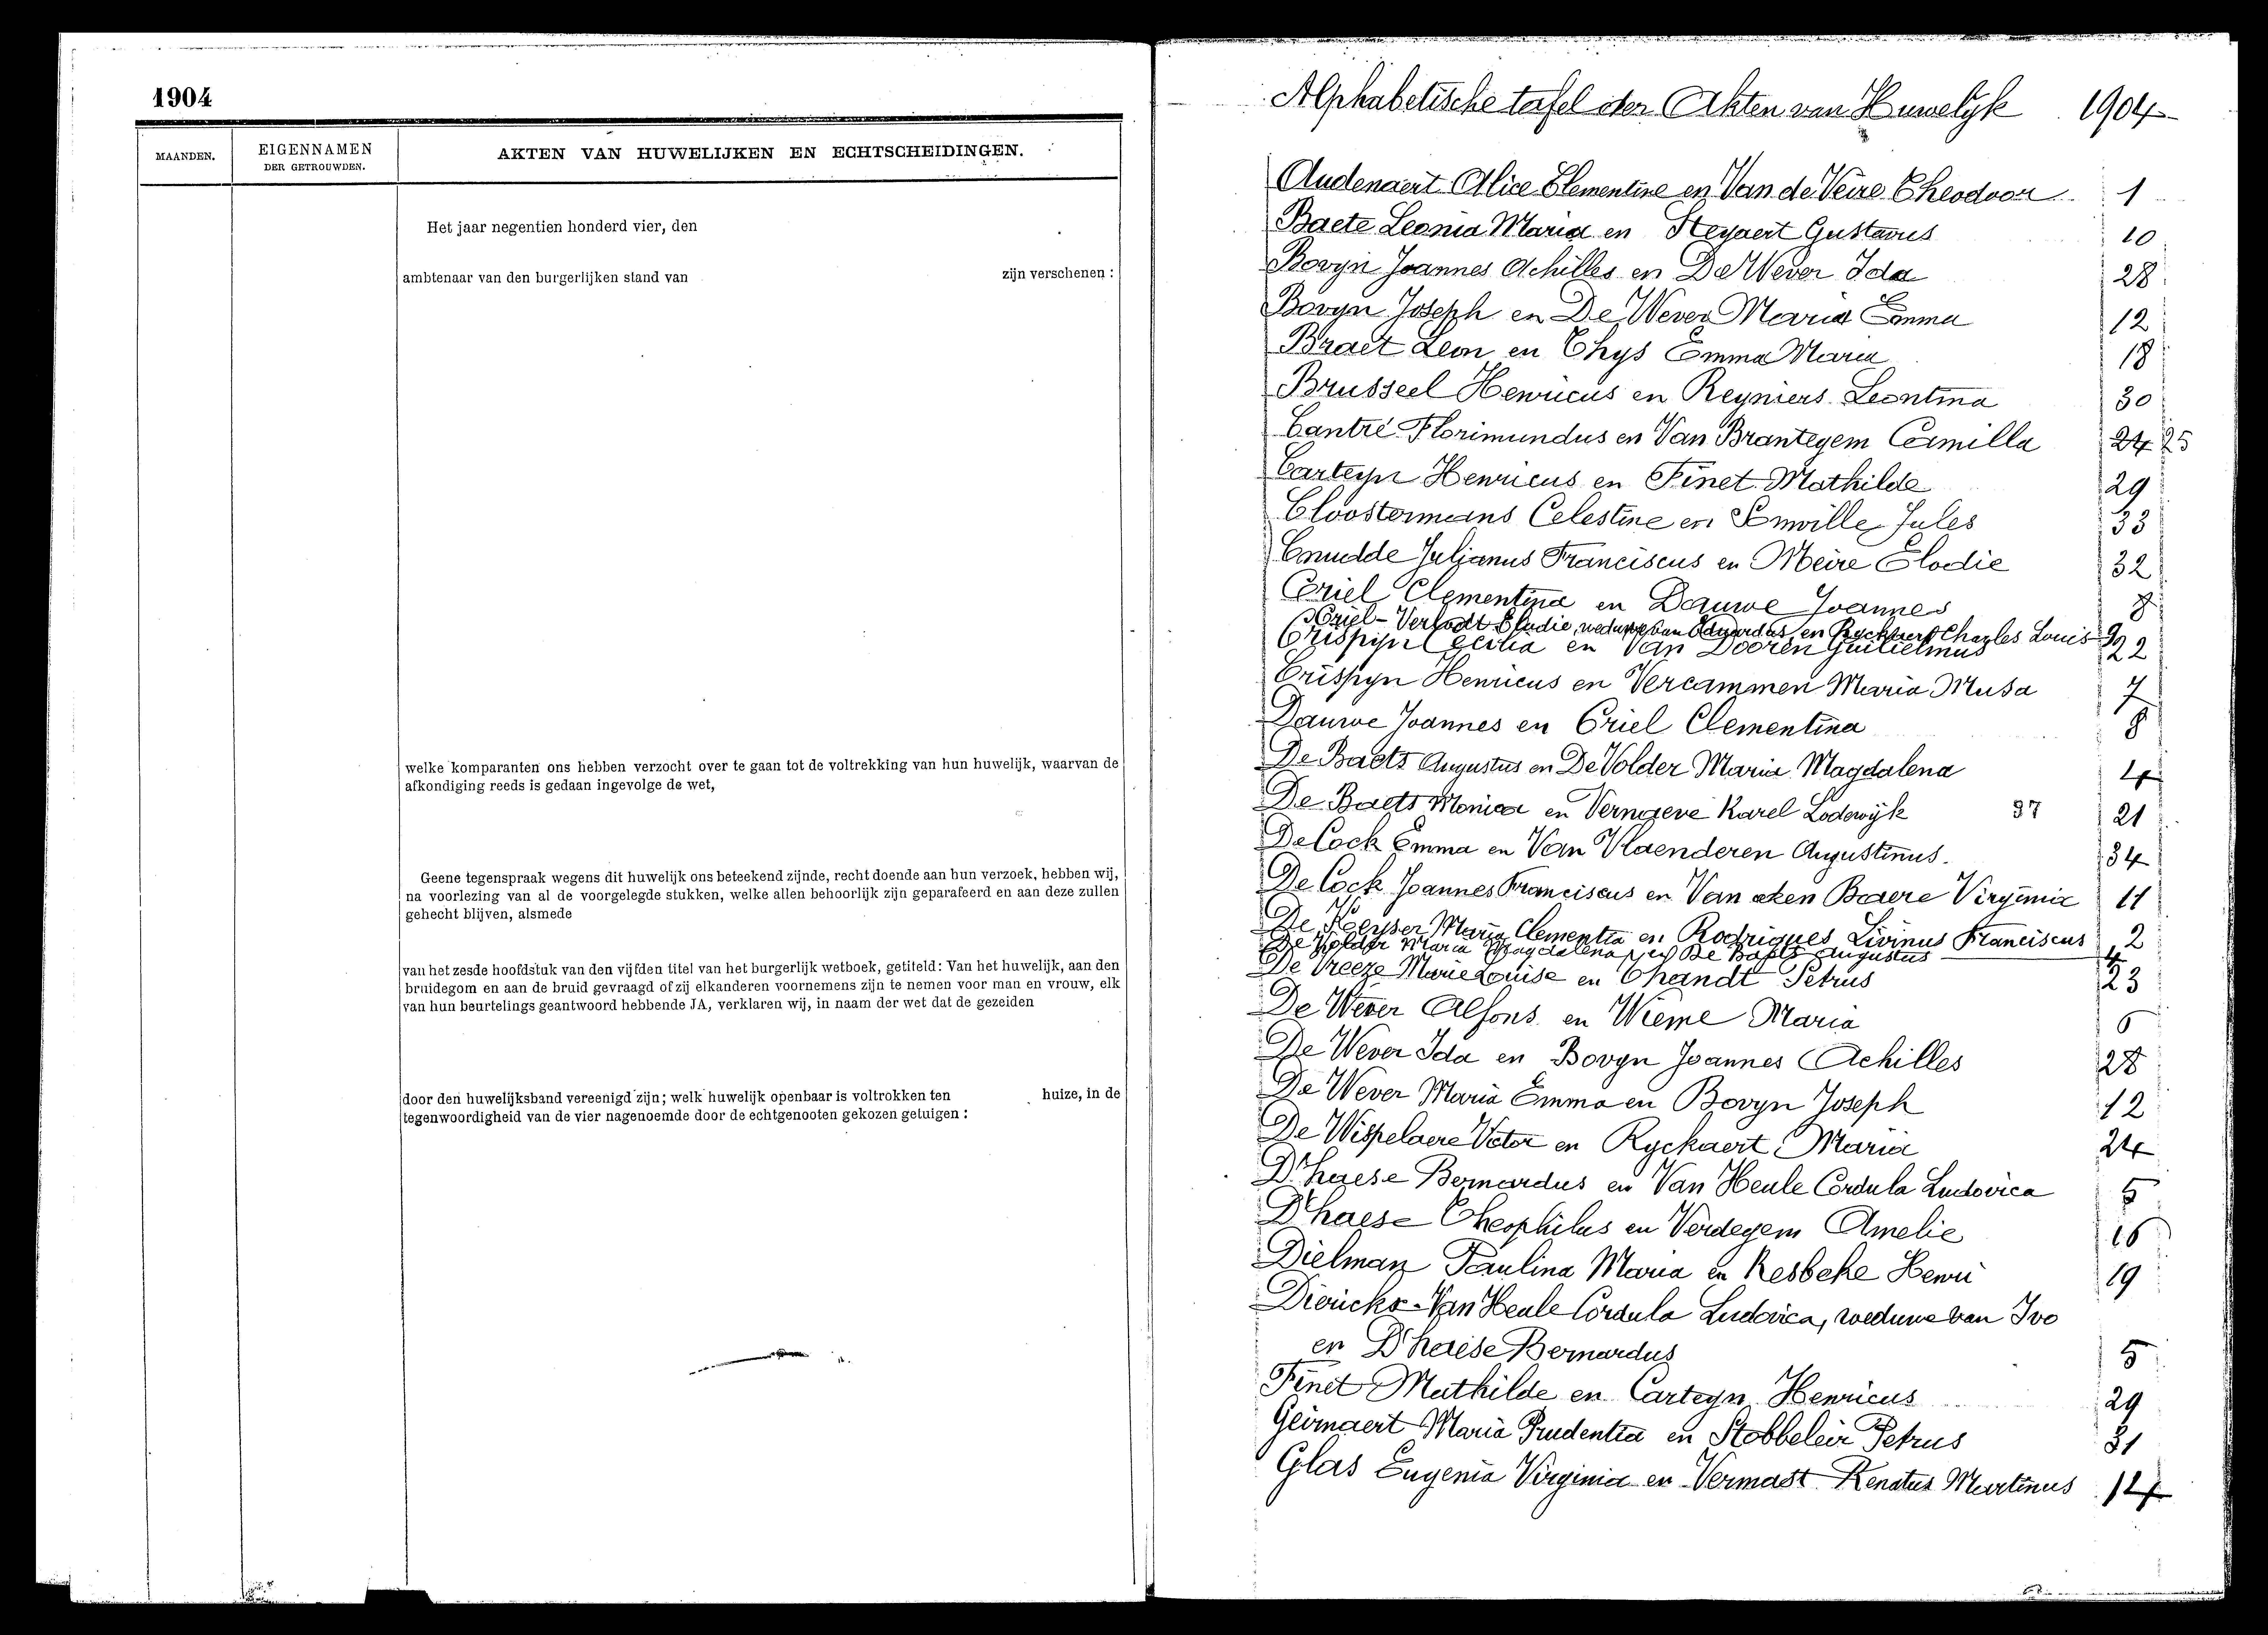 1904
MAANDEN.
EIGENNAMEN
DER GETROUWDEN.
AKTEN VAN HUWELIJKEN EN ECHTSCHEIDINGEN.
Het jaar negentien honderd vier, den
ambtenaar van den burgerlijken stand van zijn verschenen :
welke komparanten ons hebben verzocht over te gaan tot de voltrekking van hun huwelijk, waarvan de
afkondiging reeds is gedaan ingevolge de wet,
Geene tegenspraak wegens dit huwelijk ons beteekend zijnde, recht doende aan hun verzoek, hebben wij,
na voorlezing van al de voorgelegde stukken, welke allen behoorlijk zijn geparafeerd en aan deze zullen
gehecht blijven, alsmede
van het zesde hoofdstuk van den vijfden titel van het burgerlijk wetboek, getiteld: Van het huwelijk, aan den
bruidegom en aan de bruid gevraagd of zij elkanderen voornemens zijn te nemen voor man en vrouw, elk
van hun beurtelings geantwoord hebbende JA, verklaren wij, in naam der wet dat de gezeiden
door den huwelijksband vereenigd zijn; welk huwelijk openbaar is voltrokken ten huize, in de
tegenwoordigheid van de vier nagenoemde door de echtgenooten gekozen getuigen :
Alphabetische tafel der Akten van Huwelyk 1904
Audenaert Alice Clementine en Van de Veire Theodoor 1
Baete Leonia Maria en Steyaert Gustavus 10
Bovyn Joannes Achilles en De Wever Ida 28
Bovyn Joseph en De Wever Maria Emma 12
Braet Leon en Thys Emma Maria 18
Brusseel Henricus en Reyniers Leontina 30
Cantré Florimundus en Van Brantegem Camilla 24 25
Carteyn Henricus en Finet Mathilde 29
Cloostermans Celestine en Somville Jules 33
Cnudde Julianus Franciscus en Meire Elodie 32
Criel Clementina en Dauwe Joannes 8
Criel-Verlodt Elodie, weduwe van Eduardus, en Ryckaert Charles Louis 9
Crispyn Cecilia en Van Dooren Guilielmus 22
Crispyn Henricus en Vercammen Maria Musa 7
Dauwe Joannes en Criel Clementina 8
De Baets Augustus en De Volder Maria Magdalena 4
De Baets Monica en Vernaeve Karel Lodewijk 37 21
De Cock Emma en Van Vlaenderen Augustinus. 34
De Cock Joannes Franciscus en Van aken Baere Virginia 11
De Keyser Maria Clementia en Rodrigues Livinus Franciscus 2
De Volder Maria Magdalena en De Baets Augustus 4
De Vreeze Marie Louise en Thandt Petrus 23
De Wever Alfons en Wieme Maria 6
De Wever Ida en Bovyn Joannes Achilles 28
De Wever Maria Emma en Bovyn Joseph 12
De Wispelaere Victor en Ryckaert Maria 24
D'haese Bernardus en Van Heule Cordula Ludovica 5
D'haese Theophilus en Verdegem Amelie 16
Dielman Paulina Maria en Kesbeke Henri 19
Dierickx-Van Heule Cordula Ludovica, weduwe van Ivo
en D'haese Bernardus 5
Finet Mathilde en Carteyn Henricus 29
Geirnaert Maria Prudentia en Stobbeleir Petrus 31
Glas Eugenia Virginia en Vermast Renatus Martinus 14